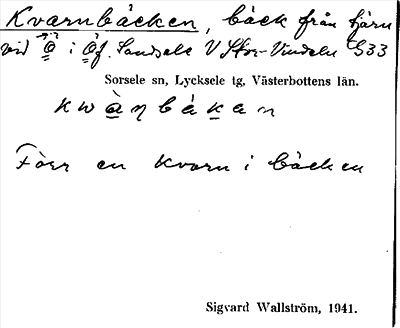 Kvarnbäcken, bäck från tjärn
vid Ö i Öf. Sandsele V Stor-Vindeln G33
Sorsele sn, Lycksele tg, Västerbottens län.
Förr en kvarn i bäcken
Sigvard Wallström, 1941.